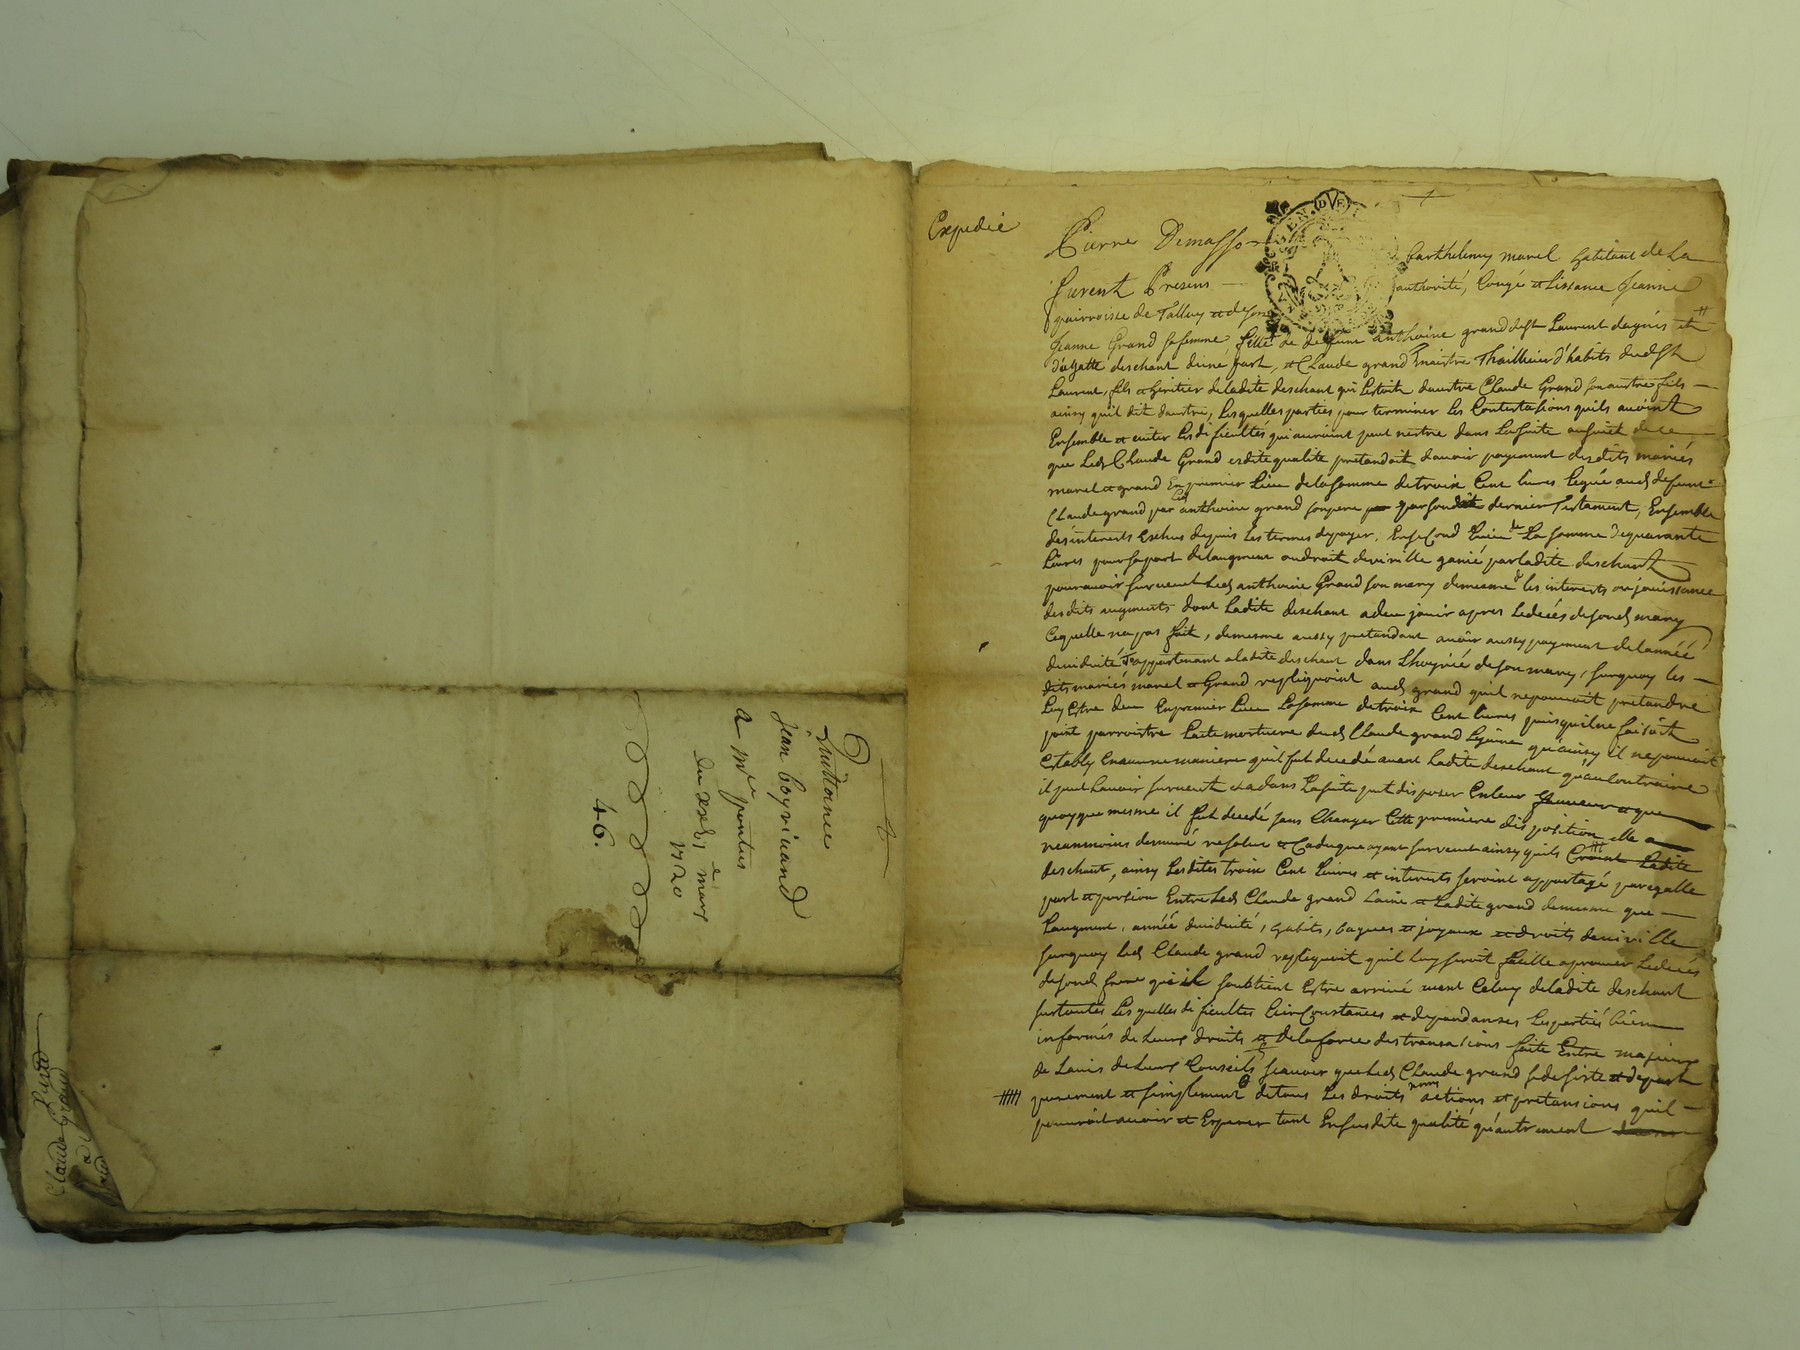 Quittance
Jean Boyrivand
a mre pontus
du xxvj e mars
1720
46.
Claude Grand
Expedié
Pierre Demasso
furent Presens Barthelemy marel habitant de La
parroisse de Talluy et de son authorité, Congé et Lissance Jeanne
Jeanne Grand sa femme fille de deffunt anthoine grand de St Laurent dagnis et
d'agatte deschant d'une part, et Claude grand maistre Thaillieur d'habits dudt St
Laurent, fils et heritier de ladite deschant qui L'estoit dautre Claude Grand son autre fils
ainsy quil dit dautre, Lesquelles parties pour terminer les Contestasions quils avoint
Ensemble et eviter les dificultés qui auroint peut nestre dans La suite au suiet de ce
que Ledt Claude Grand esdite qualité pretandoit davoir payement desdits mariés
marel et grand En premier Lieu de la somme de troix Cent livres leguée audt defunt
Claude grand par Ledt anthoine grand son pere par son dernier Testament, Ensemble
des interests Escheus depuis Les termes de payer, En second Lieu de La somme de quarante
Livres pour sa part de laugment ou droit de viville gagné par ladite deschant
pour avoir survecut Ledt anthoine Grand son mary de mesme que les interests ou jouissance
desdits augments dont Ladite deschant a deu jouir apres Le decés de sondt mary
Ce quelle na pas fait, de mesme aussy pretandant avoir aussy payement de lannée
de viduité appartenant a ladite deschant dans Lhoyrié de son mary, surquoy les
dits mariés marel et Grand repliquoint audt grand quil ne pouvoit pretandre
Luy Estre deu En premier Lieu La somme de troix Cent livres puisquil ne faisoit
point parroistre Lacte mortuere dudt Claude grand Lejeune qu'ainsy il ne pouvoit
Establir En aucune maniere quil fut decedé avant Ladite deschant qu'au Contraire
il peut Lavoir survecut et a dans La suite peut disposer En leur faveur et que
quoyque mesme il fut decedé sans Changer Cette premiere disposition elle a
neanmoins demuré resolue et Caduque ayant survecut ainsy quils Croint Ladite
deschant, ainsy Lesdites troix Cent Livres et interests seroint appartagé par egalle
part et porsion Entre Ledt Claude grand Laine et Ladite grand de mesme que
Laugment, année de viduité, habits, bagues et joyaux et droits de viville
surquoy Ledt Claude grand repliquoit quil Luy seroit facille a prouver Le decés
de sondt frere qu'il soubtient Estre arrivé avant Celuy de ladite deschant
sur toutes Lesquelles dificultes Circonstances et dependanses Les parties bien
informés de Leurs droits et de la force des transactions faite Entre majeurs
de Lavis de Leurs Conseils scavoir que Ledt Claude grand se desiste et depart
purement et simplement de tous Les droits noms actions et pretansions quil
pourroit avoir et Esperer tant En susdite qualité qu'autrement